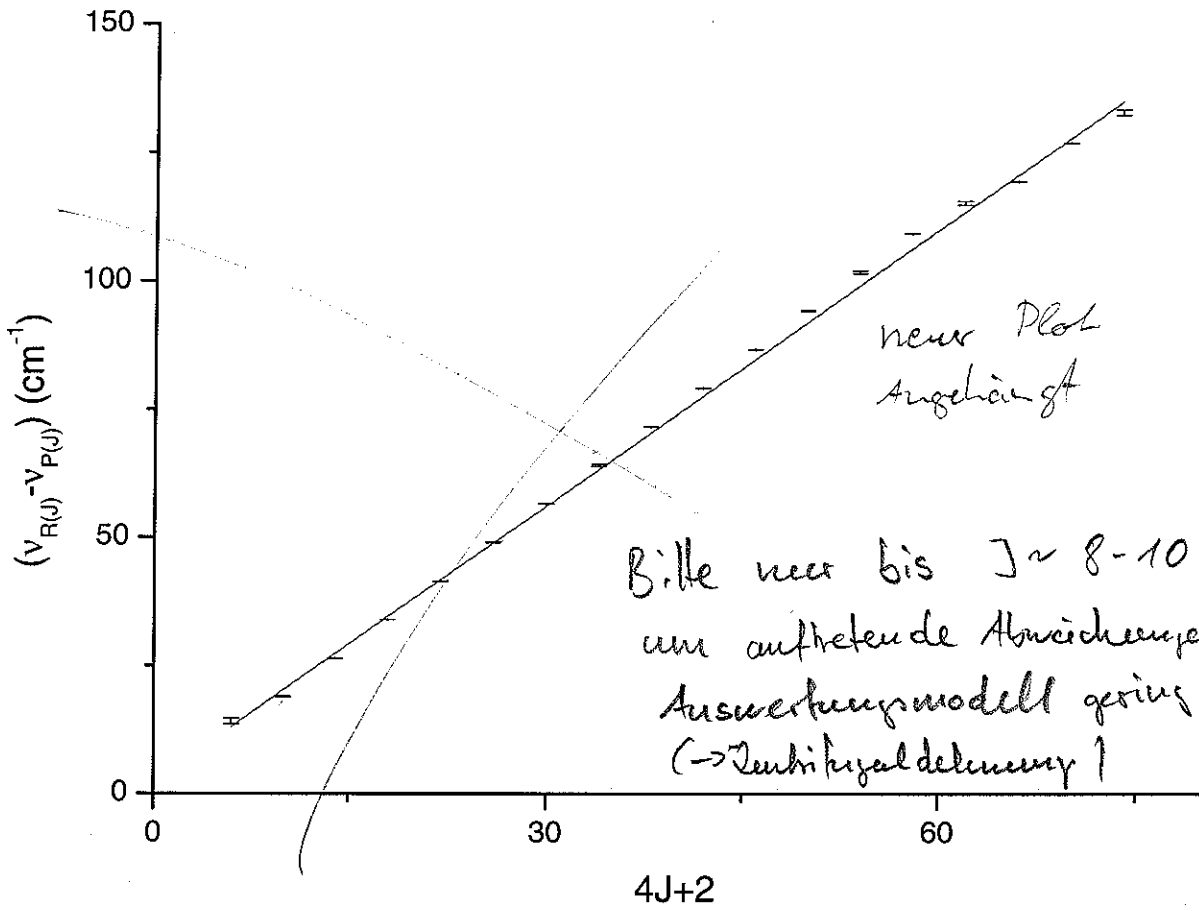 150
100
50
0
0
30
60
(ν_R(J)-ν_P(J)) (cm⁻¹)
4J+2
neuer Plot
Angehängt
Bitte nur bis J ~ 8-10
um auftretende Abweichunge
Auswertungsmodell gering
(→Zentrifugaldehnung)